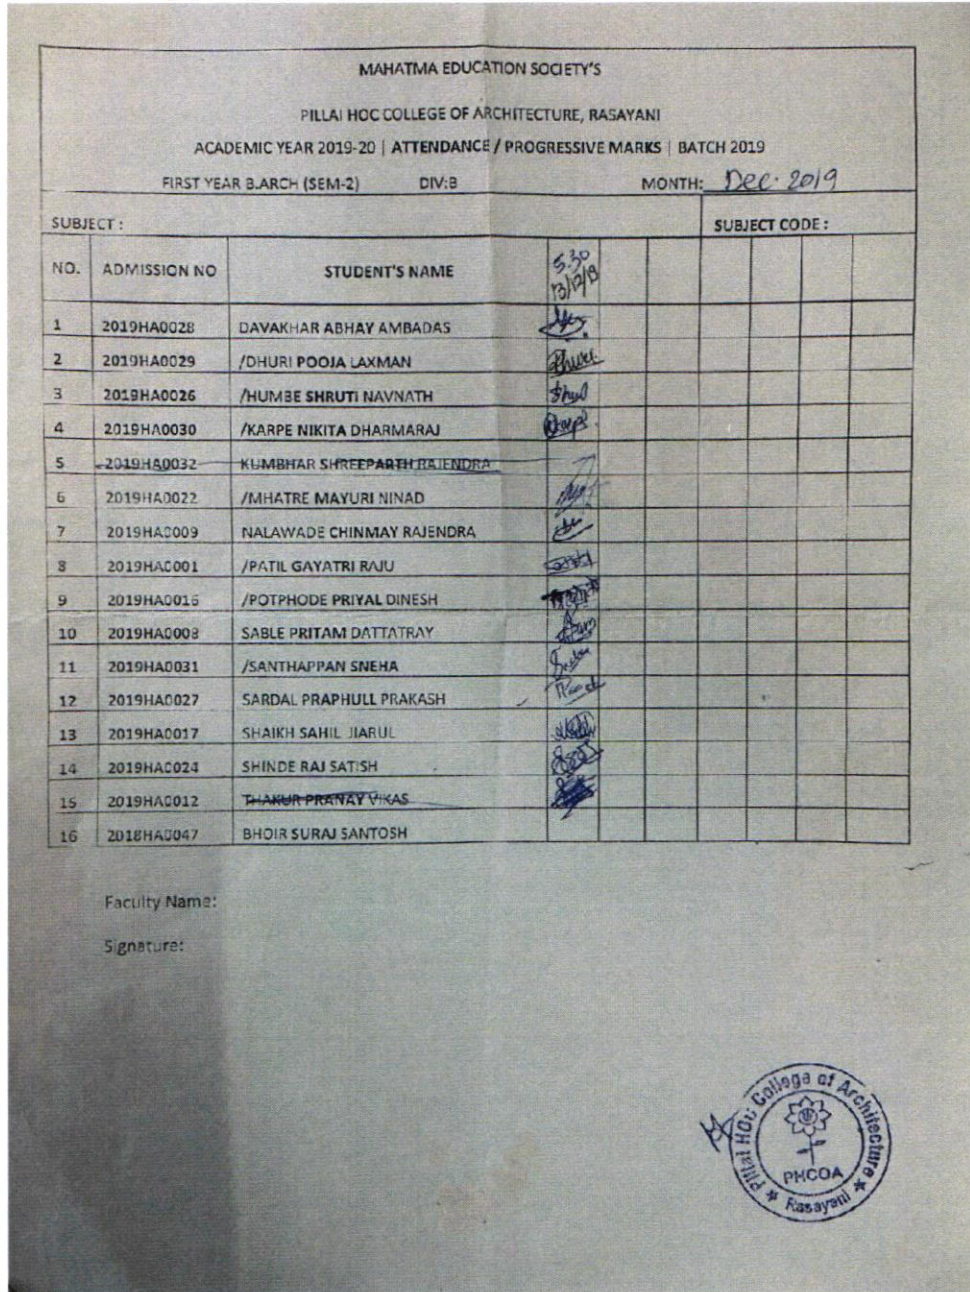 MAHATMA EDUCATION SOCIETY'S
PILLAI HOC COLLEGE OF ARCHITECTURE, RASAYANI
ACADEMIC YEAR 2019-20 | ATTENDANCE / PROGRESSIVE MARKS | BATCH 2019
FIRST YEAR B.ARCH (SEM-2) DIV:B MONTH: Dec. 2019
SUBJECT : SUBJECT CODE :
NO. ADMISSION NO STUDENT'S NAME 5.30 13/12/19
1 2019HA0028 DAVAKHAR ABHAY AMBADAS
2 2019HA0029 /DHURI POOJA LAXMAN Dhuri
3 2019HA0026 /HUMBE SHRUTI NAVNATH
4 2019HA0030 /KARPE NIKITA DHARMARAJ
5 2019HA0032 KUMBHAR SHREEPARTH RAJENDRA
6 2019HA0022 /MHATRE MAYURI NINAD
7 2019HA0009 NALAWADE CHINMAY RAJENDRA
8 2019HA0001 /PATIL GAYATRI RAJU
9 2019HA0016 /POTPHODE PRIYAL DINESH
10 2019HA0008 SABLE PRITAM DATTATRAY
11 2019HA0031 /SANTHAPPAN SNEHA Sneha
12 2019HA0027 SARDAL PRAPHULL PRAKASH
13 2019HA0017 SHAIKH SAHIL JIARUL
14 2019HA0024 SHINDE RAJ SATISH
15 2019HA0012 THAKUR PRANAY VIKAS
16 2018HA0047 BHOIR SURAJ SANTOSH
Faculty Name:
Signature:
Pillai HOC College of Architecture
PHCOA
Rasayani